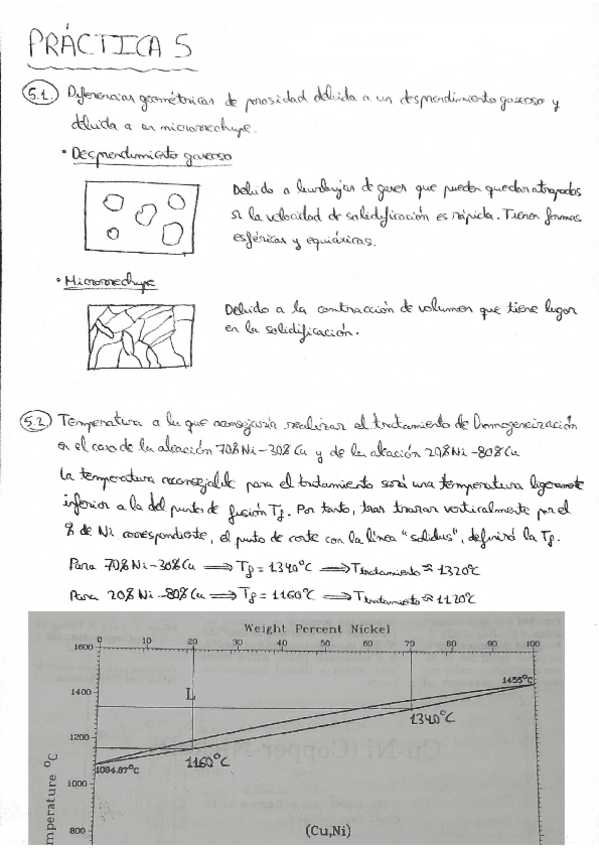 PRÁCTICA 5
5.1. Diferencias geométricas de porosidad debida a un desprendimiento gaseoso y
debida a un microrrechupe.
• Desprendimiento gaseoso
Debido a burbujas de gases que pueden quedar atrapados
si la velocidad de solidificación es rápida. Tienen formas
esféricas y equiáxicas.
• Microrrechupe
Debido a la contracción de volumen que tiene lugar
en la solidificación.
5.2 Temperatura a la que aconsejaría realizar el tratamiento de homogeneización
en el caso de la aleación 70% Ni-30% Cu y de la aleación 20% Ni-80% Cu
La temperatura aconsejable para el tratamiento será una temperatura ligeramente
inferior a la del punto de fusión Tf. Por tanto, tras trazar verticalmente por el
% de Ni correspondiente, el punto de corte con la línea "solidus", definirá la Tf.
Para 70% Ni-30% Cu ⟹ Tf = 1340°C ⟹ Ttratamiento ≈ 1320°C
Para 20% Ni-80% Cu ⟹ Tf = 1160°C ⟹ Ttratamiento ≈ 1120°C
Weight Percent Nickel
0 10 20 30 40 50 60 70 80 90 100
1600
1455°C
1400
L
1340°C
1200
1160°C
1084.87°C
1000
mperature °C
800
(Cu,Ni)